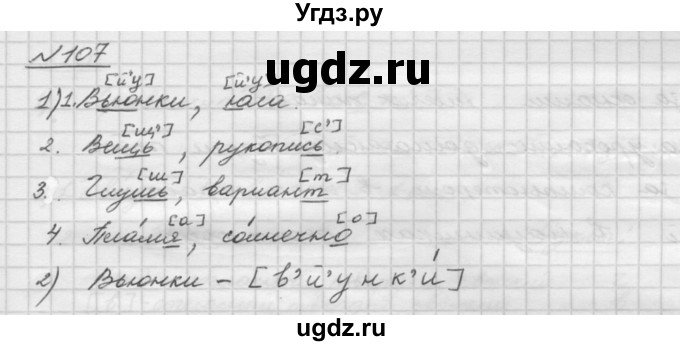 Угдз.ру
№107
ugdz.ru
[й'у] [й'у]
1) 1. Вьюнки, юла.
[щ'] [с']
2. Вещь, рукопись
[ш] [т]
3. Глушь, вариант
[а] [о]
4. Пламя, солнечно
2) Вьюнки – [в'й'унк'и́]
ugdz.ru